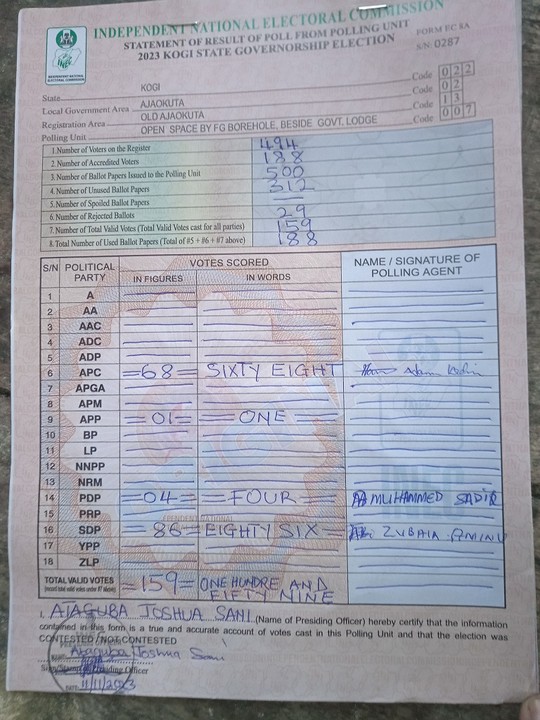 INDEPENDENT NATIONAL ELECTORAL COMMISSION
STATEMENT OF RESULT OF POLL FROM POLLING UNIT
2023 KOGI STATE GOVERNORSHIP ELECTION
FORM EC 8A
S/N: 0287
State KOGI Code 022
Local Government Area AJAOKUTA Code 02
Registration Area OLD AJAOKUTA Code 13
Polling Unit OPEN SPACE BY FG BOREHOLE, BESIDE GOVT. LODGE Code 007
1.Number of Voters on the Register 494
2.Number of Accredited Voters 188
3.Number of Ballot Papers Issued to the Polling Unit 500
4.Number of Unused Ballot Papers 312
5.Number of Spoiled Ballot Papers —
6.Number of Rejected Ballots 29
7.Number of Total Valid Votes (Total Valid Votes cast for all parties) 159
8.Total Number of Used Ballot Papers (Total of #5 + #6 + #7 above) 188
S/N POLITICAL PARTY VOTES SCORED NAME / SIGNATURE OF POLLING AGENT
IN FIGURES IN WORDS
1 A
2 AA
3 AAC
4 ADC
5 ADP
6 APC =68= SIXTY EIGHT
7 APGA
8 APM
9 APP =01= =ONE=
10 BP
11 LP
12 NNPP
13 NRM
14 PDP =04= =FOUR= MUHAMMED SADIR
15 PRP
16 SDP =86= EIGHTY SIX= ZUBAIR AMINU
17 YPP
18 ZLP
TOTAL VALID VOTES =159= ONE HUNDRE AND
FIFTY NINE
I, ATAGUBA JOSHUA SANI (Name of Presiding Officer) hereby certify that the information
contained in this form is a true and accurate account of votes cast in this Polling Unit and that the election was
CONTESTED / NOT CONTESTED
Ataguba Joshua Sani
Sign/Stamp of Presiding Officer
DATE: 11/11/2023